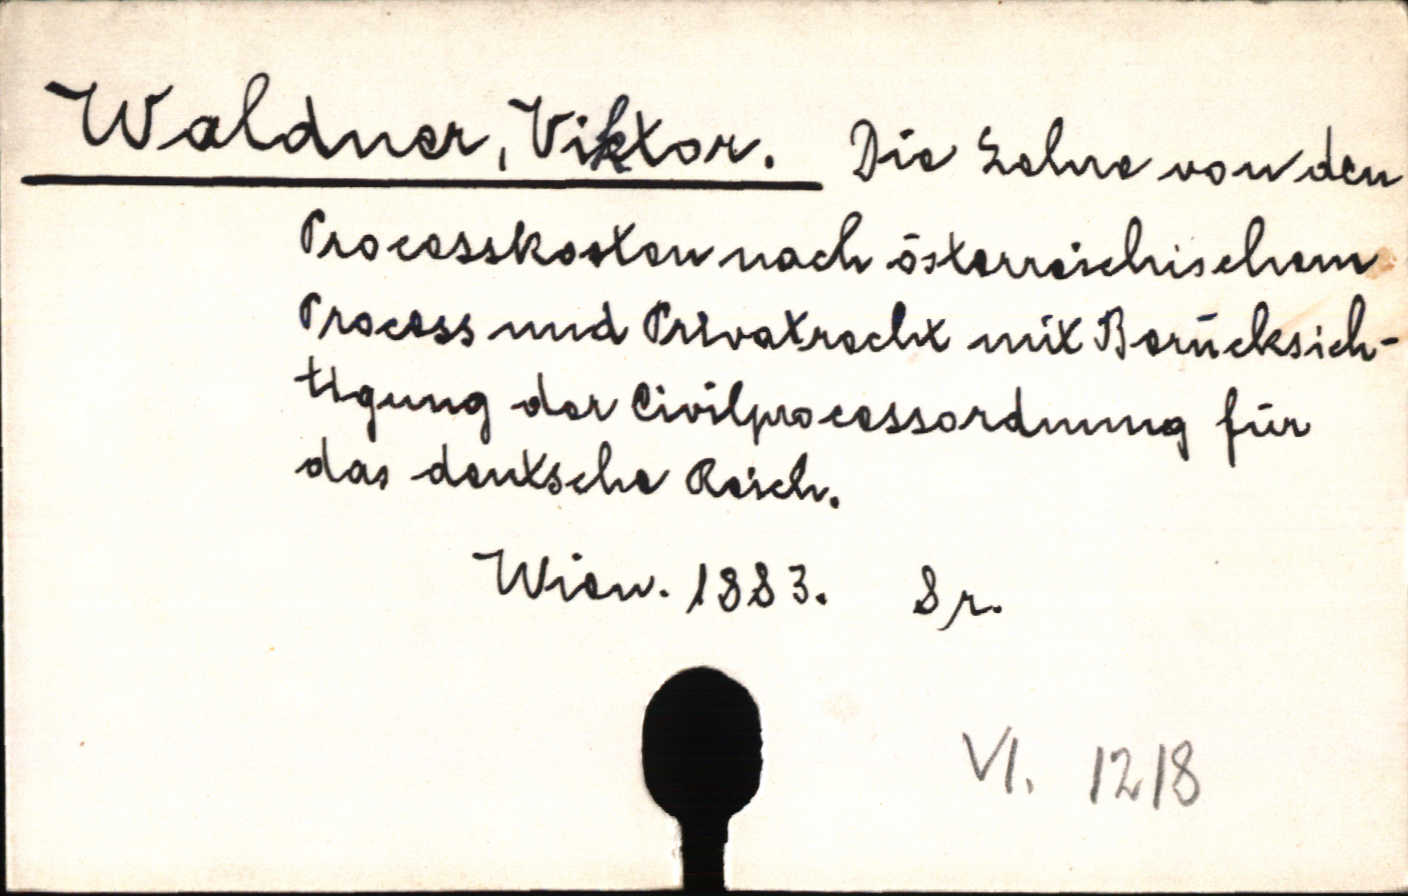 Waldner, Viktor. Die Lehre von den
Processkosten nach österreichischem
Process und Privatrecht mit Berücksich-
tigung der Civilprocessordnung für
das deutsche Reich.
Wien. 1883. 8r.
VI. 1218